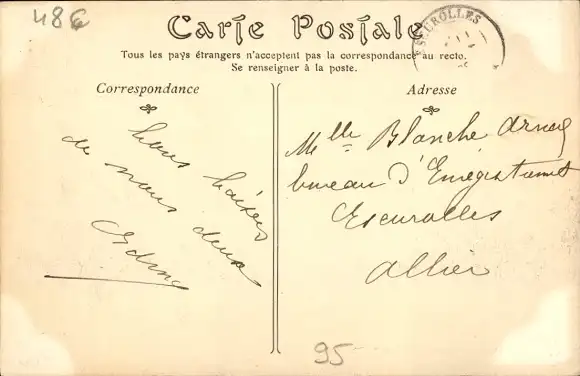 48€
Carte Postale
ESCUROLLES
Tous les pays étrangers n'acceptent pas la correspondance au recto.
Se renseigner à la poste.
Correspondance
Adresse
bons baisers
de nous deux
Mlle Blanche
bureau d'Enregistrement
Escurolles
Allier
95